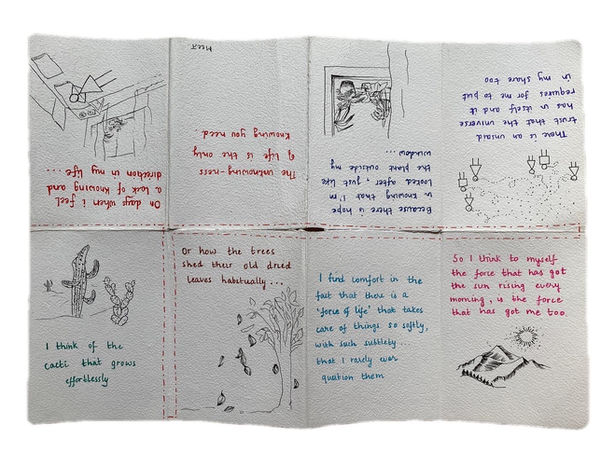 On days when i feel
a lack of knowing and
direction in my life...
I think of the
cacti that grows
effortlessly
Or how the trees
shed their old dried
leaves habitually...
I find comfort in the
fact that there is a
'force of life' that takes
care of things so softly,
with such subtlety...
that I rarely ever
question them
So I think to myself
the force that has got
the sun rising every
morning, is the force
that has got me too.
There is an unsaid
trust that the universe
has in itself and it
requires for me to put
in my share too
Because there is hope
in knowing that I'm
looked after, just like
the plant outside my
window...
The unknowing-ness
of life is the only
knowing you need